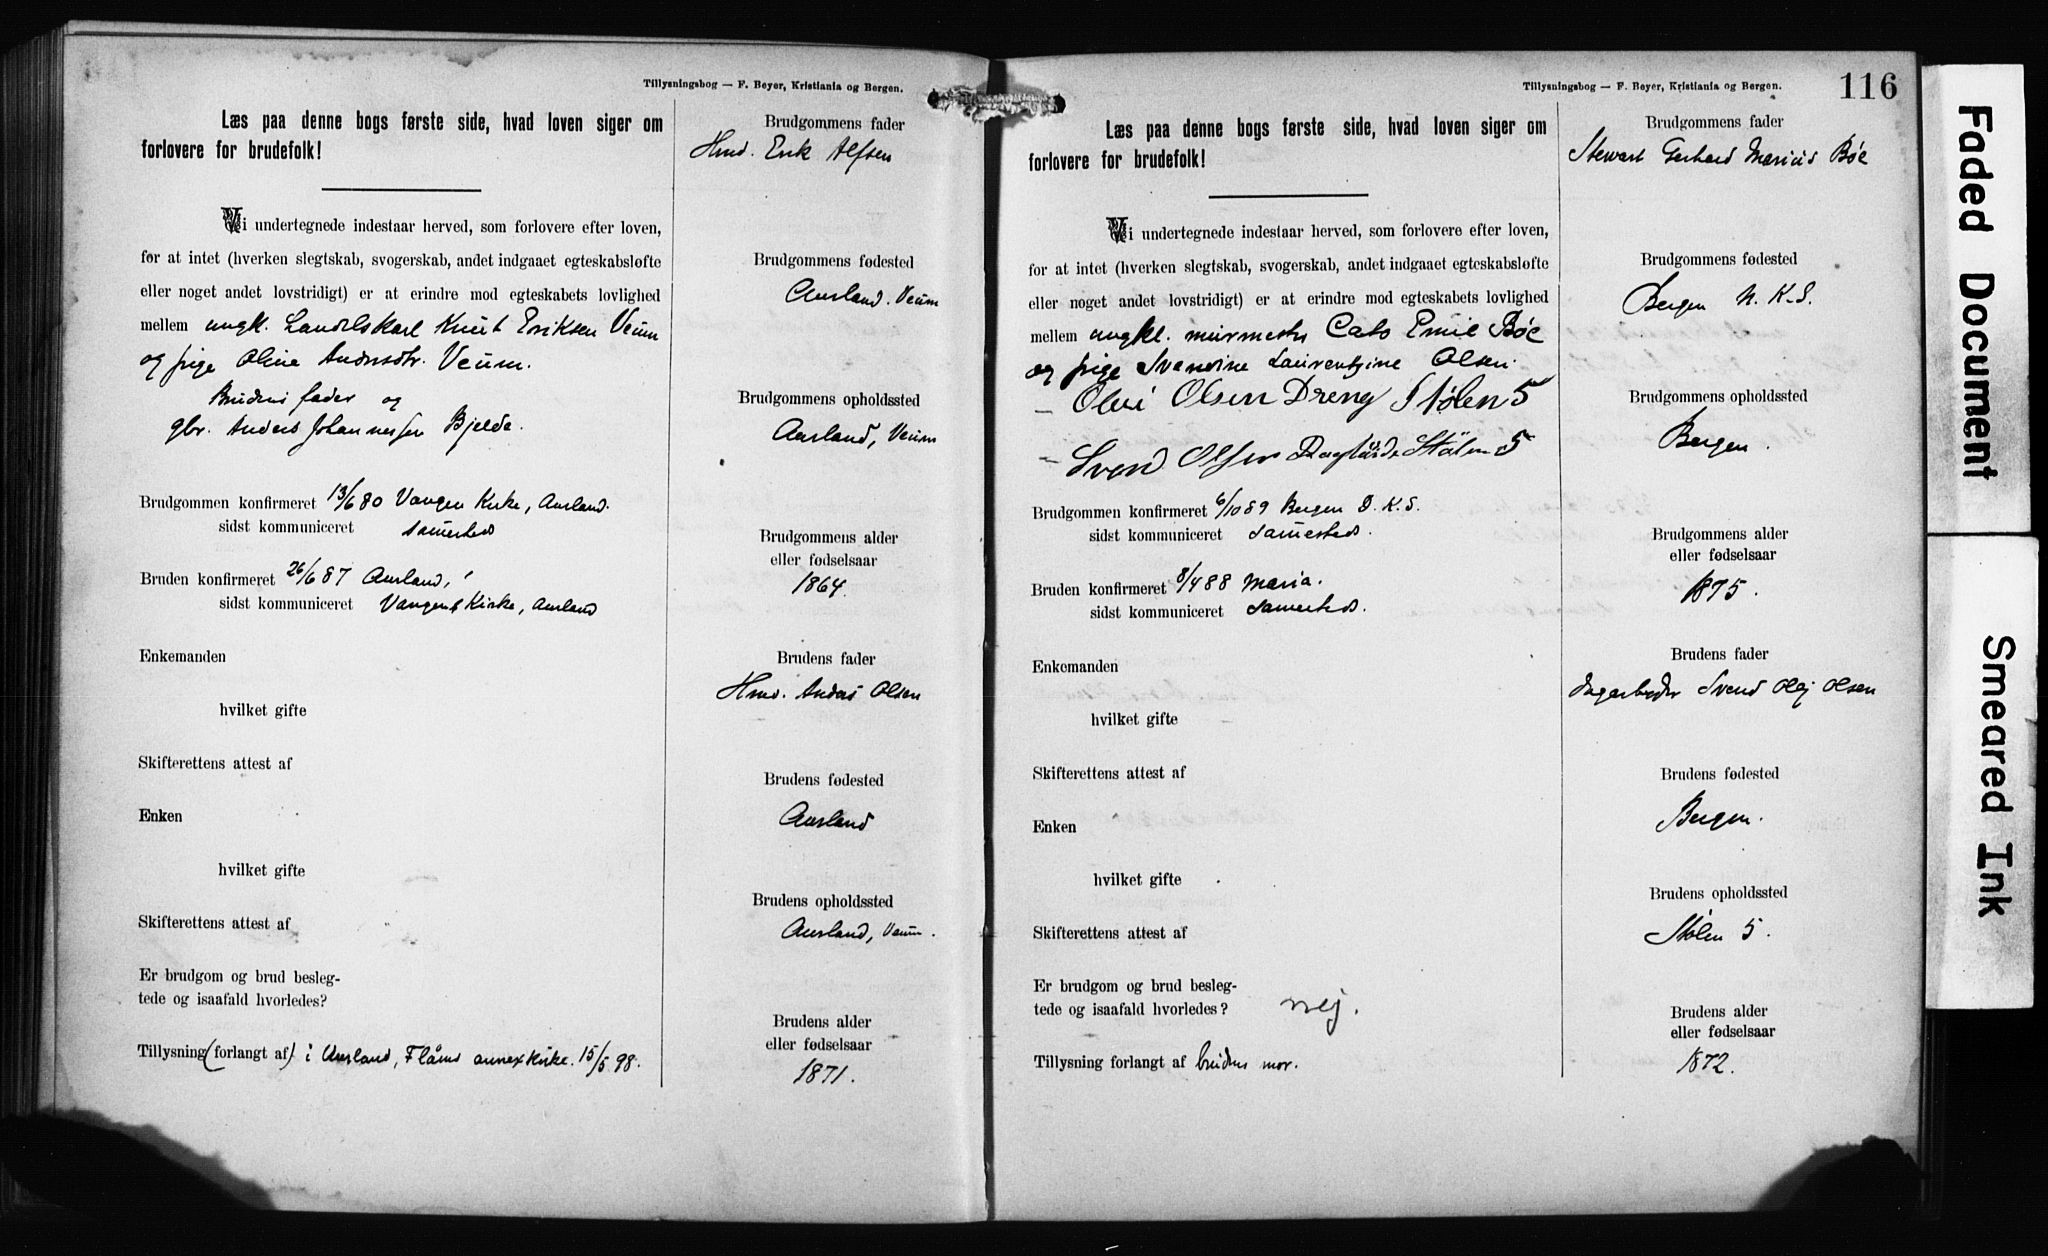 Tillysningsbog — F. Beyer, Kristiania og Bergen.
Læs paa denne bogs første side, hvad loven siger om
forlovere for brudefolk!
Vi undertegnede indestaar herved, som forlovere efter loven,
før at intet (hverken slegtskab, svogerskab, andet indgaaet egteskabsløfte
eller noget andet lovstridigt) er at erindre mod egteskabets lovlighed
mellem ungk. Knut Eriksen Veum
og pige Oline Andersdtr. Veum.
Brudens fader og
gbr. Anders Johannessen Bjelde.
Brudgommen konfirmeret 13/6 80 Vangen Kirke, Aurland.
sidst kommuniceret samesteds
Bruden konfirmeret 26/6 87 Aurland,
sidst kommuniceret Vangens Kirke, Aurland
Enkemanden
hvilket gifte
Skifterettens attest af
Enken
hvilket gifte
Skifterettens attest af
Er brudgom og brud besleg-
tede og isaafald hvorledes?
Tillysning (forlangt af) i Aurland, Flåms annexkirke. 15/5 98.
Brudgommens fader
Hmd. Erik Alfsen
Brudgommens fødested
Aurland. Veum
Brudgommens opholdssted
Aurland, Veum
Brudgommens alder
eller fødselsaar
1864.
Brudens fader
Hmd. Anders Olsen
Brudens fødested
Aurland
Brudens opholdssted
Aurland, Veum.
Brudens alder
eller fødselsaar
1871.
Tillysningsbog — F. Beyer, Kristiania og Bergen.
116
Læs paa denne bogs første side, hvad loven siger om
forlovere for brudefolk!
Vi undertegnede indestaar herved, som forlovere efter loven,
for at intet (hverken slegtskab, svogerskab, andet indgaaet egteskabsløfte
eller noget andet lovstridigt) er at erindre mod egteskabets lovlighed
mellem ungkl. murmester Cato Emil Bøe
og pige Svendine Laurentzine Olsen.
Olsen Dreng Stølen 5
Svend Olsen Stølen 5
Brudgommen konfirmeret 6/10 89 Bergen D. K. S.
sidst kommuniceret samesteds.
Bruden konfirmeret 8/4 88 Maria.
sidst kommuniceret samesteds
Enkemanden
hvilket gifte
Skifterettens attest af
Enken
hvilket gifte
Skifterettens attest af
Er brudgom og brud besleg-
tede og isaafald hvorledes? nej.
Tillysning forlangt af brudens mor.
Brudgommens fader
Stewart Gerhard Marius Bøe
Brudgommens fødested
Bergen N. K. S.
Brudgommens opholdssted
Bergen.
Brudgommens alder
eller fødselsaar
1875.
Brudens fader
Svend Olsen
Brudens fødested
Bergen.
Brudens opholdssted
Stølen 5.
Brudens alder
eller fødselsaar
1872.
Faded Document
Smeared Ink